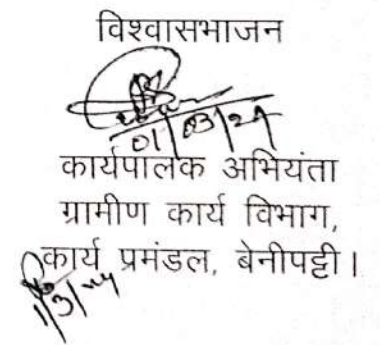 विश्वासभाजन
01/03/24
कार्यपालक अभियंता
ग्रामीण कार्य विभाग,
कार्य प्रमंडल, बेनीपट्टी।
1/3/24